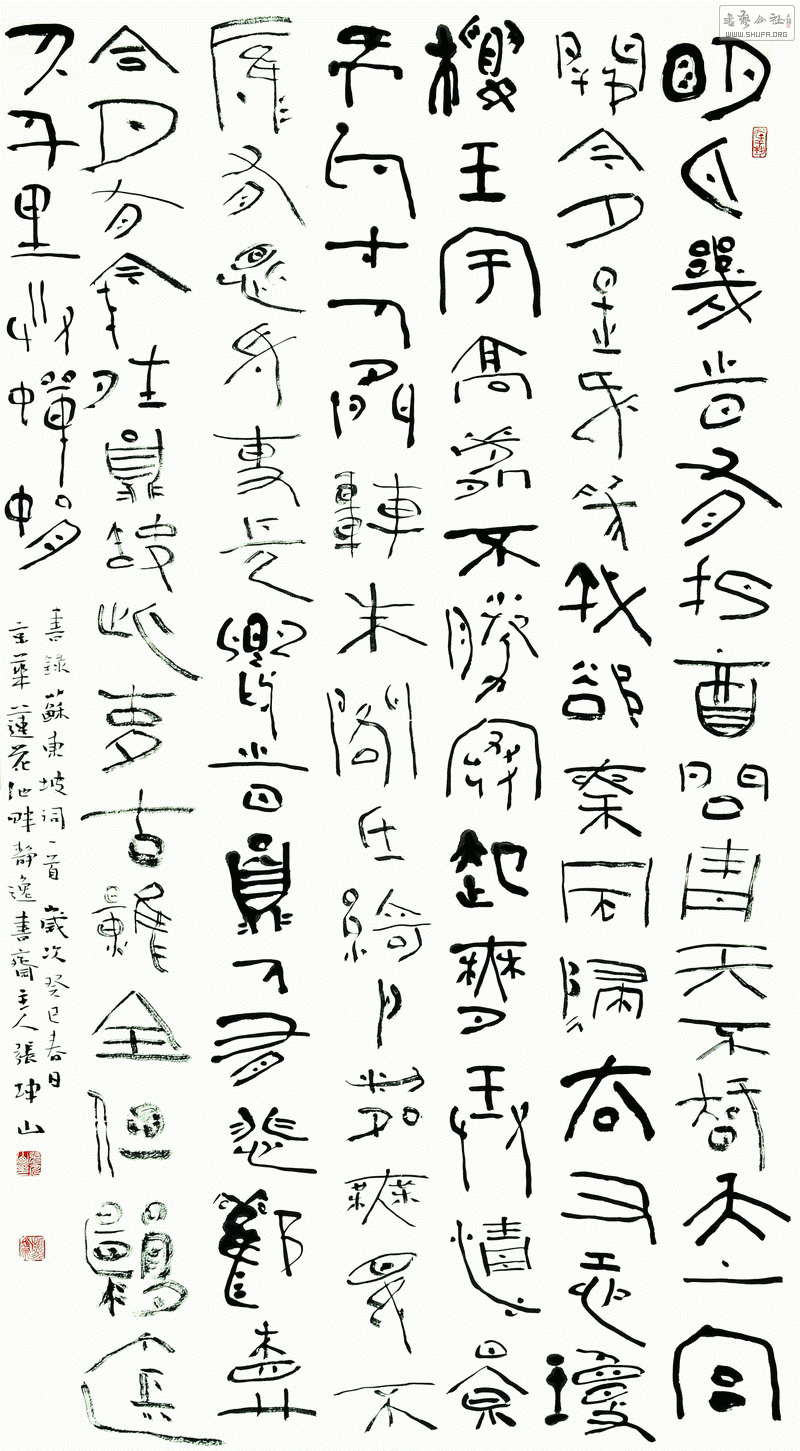 明月幾時有把酒問青天不知天上宮
闕今夕是何年我欲乘風歸去又恐瓊
樓玉宇高處不勝寒起舞弄清影
何似在人間轉朱閣低綺戶照無眠不
應有恨何事長向別時圓人有悲歡離
合月有陰晴圓缺此事古難全但願人長
久千里共嬋娟
書錄蘇東坡詞一首 歲次癸巳春日
京華蓮花池畔靜逸書齋主人張坤山
書藝公社
WWW.SHUFA.ORG